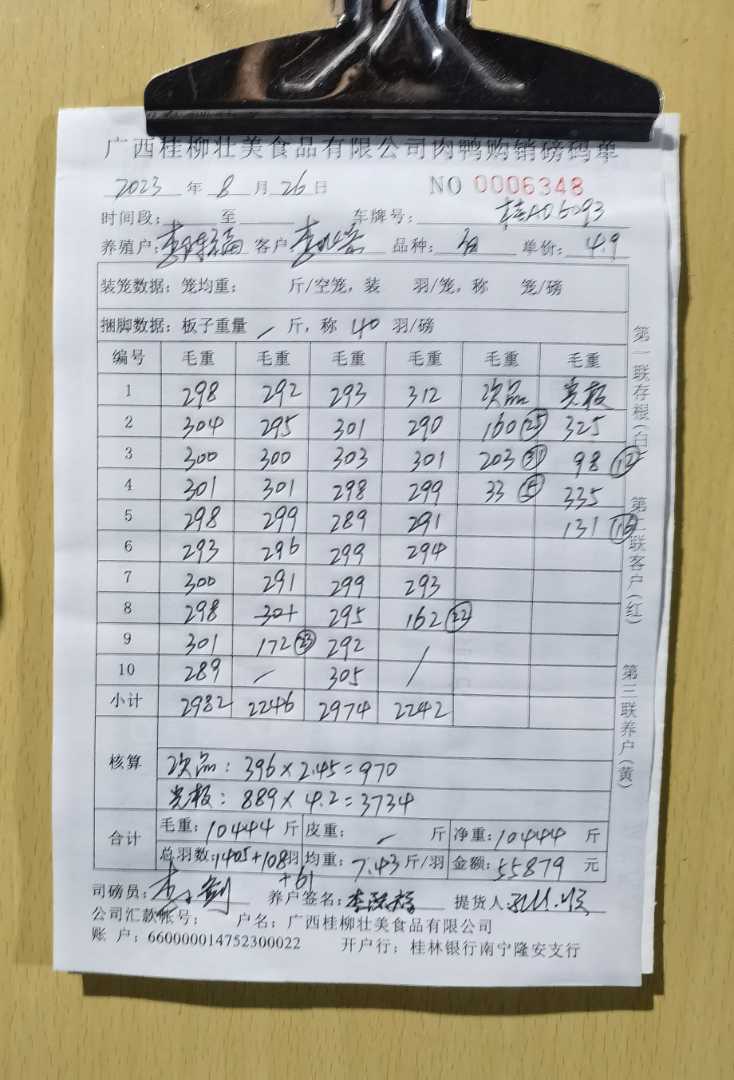 广西桂柳壮美食品有限公司肉鸭购销磅码单
2023 年 8 月 26 日 NO 0006348
时间段: 至 车牌号: 桂AD6093
养殖户: 客户: 品种: 单价: 4.9
装笼数据: 笼均重: 斤/空笼, 装 羽/笼, 称 笼/磅
捆脚数据: 板子重量 / 斤, 称 40 羽/磅
编号 毛重 毛重 毛重 毛重 毛重 毛重
1 298 292 293 312 次品 光板
2 304 295 301 290 160 25 325
3 300 300 303 301 203 31 98 12
4 301 301 298 299 33 5 335
5 298 299 289 291 131 16
6 293 296 299 294
7 300 291 299 293
8 298 301 295 162 22
9 301 172 23 292 /
10 289 / 305 /
小计 2982 2246 2974 2242
核算
次品: 396×2.45=970
光板: 889×4.2=3734
合计 毛重: 10444 斤 皮重: / 斤 净重: 10444 斤
总羽数: 1405+108羽 均重: 7.43斤/羽 金额: 55879 元
+61
司磅员: 养户签名: 提货人
公司汇款帐号: 户名: 广西桂柳壮美食品有限公司
账 户: 660000014752300022 开户行: 桂林银行南宁隆安支行
第一联存根(白) 第二联客户(红) 第三联养户(黄)